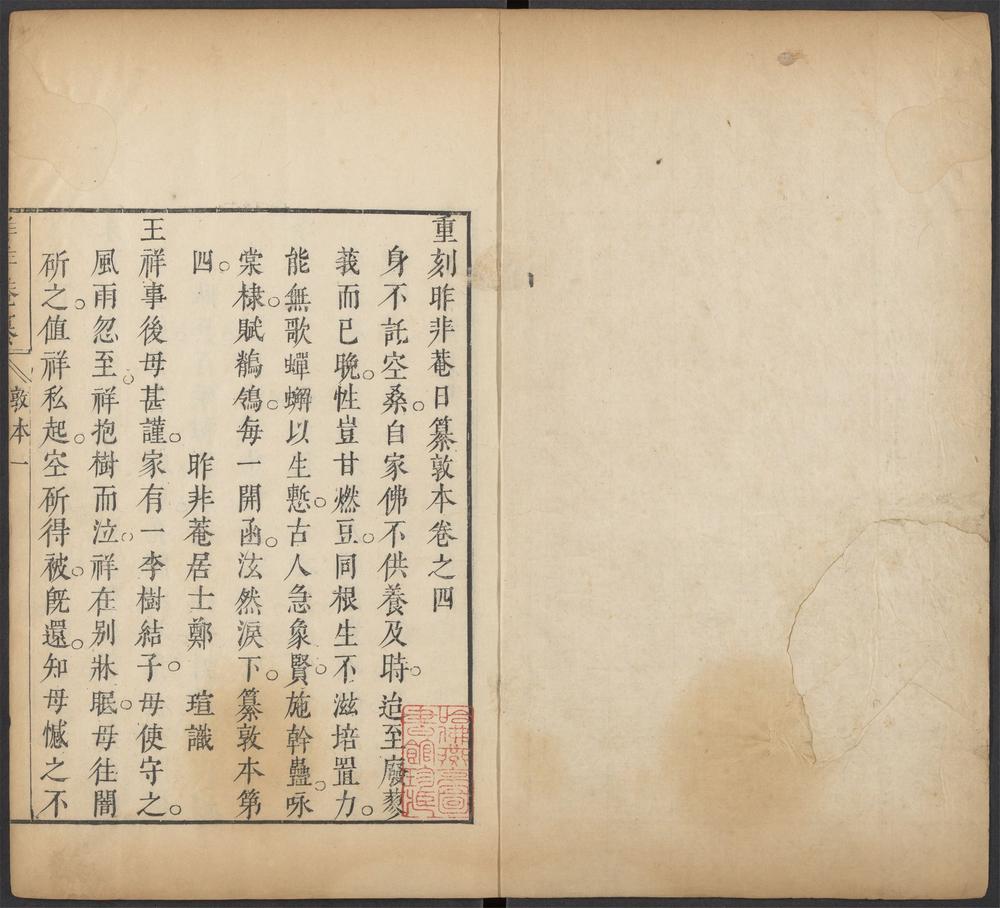 重刻昨非菴日纂敦本卷之四
身不託空桑。自家佛不供養及時。迨至廢蓼
莪而已晚。性豈甘燃豆。同根生不滋培置力。
能無歌蟬蠏以生慙。古人急象賢。施幹蠱。咏
棠棣。賦鶺鴒。每一開函。泫然淚下。纂敦本第
四。
昨非菴居士鄭 瑄識
王祥事後母甚謹。家有一李樹結子。母使守之。
風雨忽至。祥抱樹而泣。祥在别牀眠。母往闇
斫之。值祥私起。空斫得被。旣還。知母憾之不
敦本 一
哈佛燕京圖書館珍藏